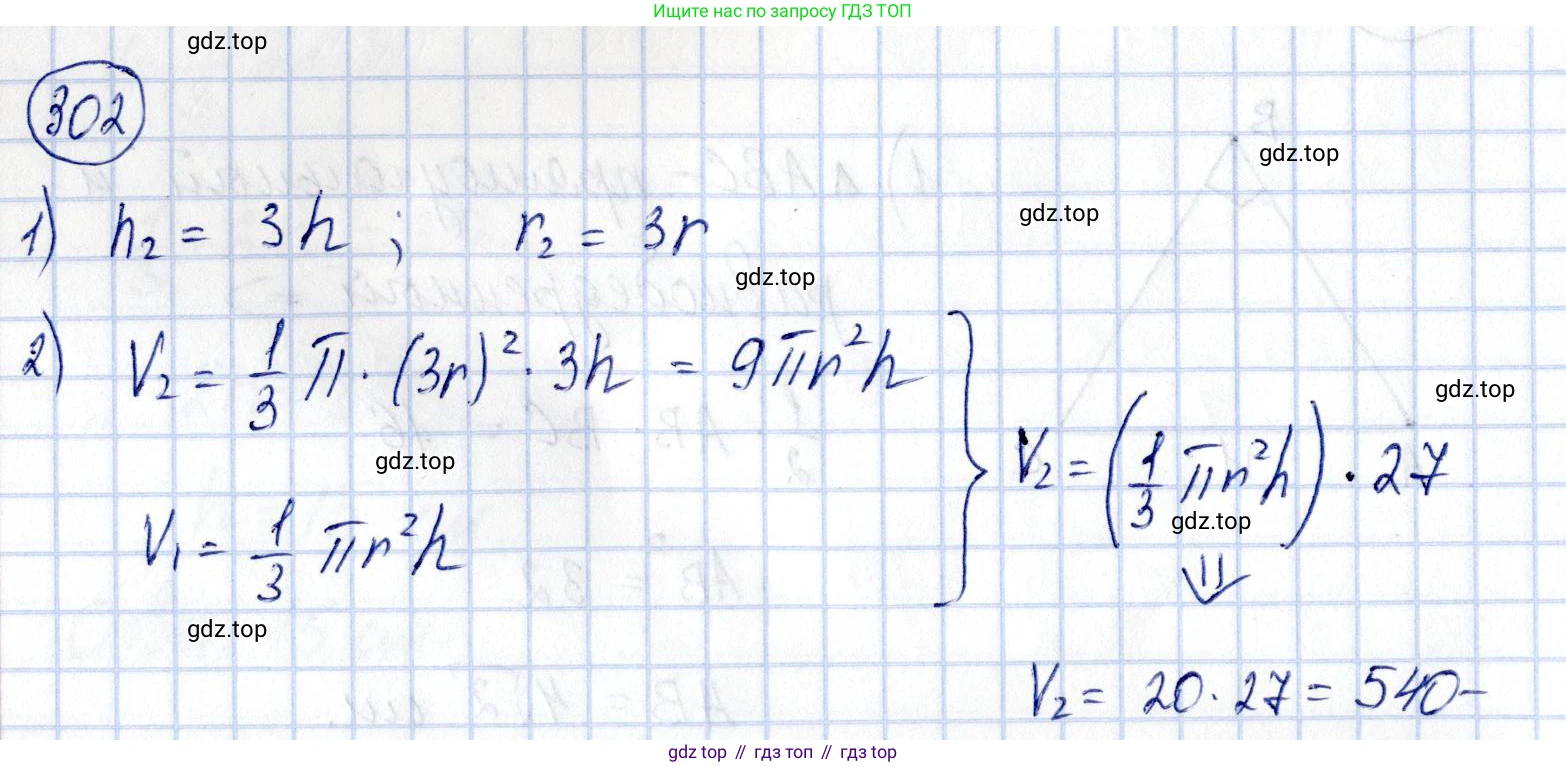 Ищите нас по запросу ГДЗ ТОП
gdz.top
302
gdz.top
1) h₂ = 3h ; r₂ = 3r
gdz.top
gdz.top
2) V₂ = 1/3 π · (3r)² · 3h = 9πr²h
gdz.top
gdz.top
V₂ = (1/3 πr²h) · 27
gdz.top
V₁ = 1/3 πr²h
⇓
gdz.top
V₂ = 20 · 27 = 540 –
gdz.top // гдз топ // гдз top